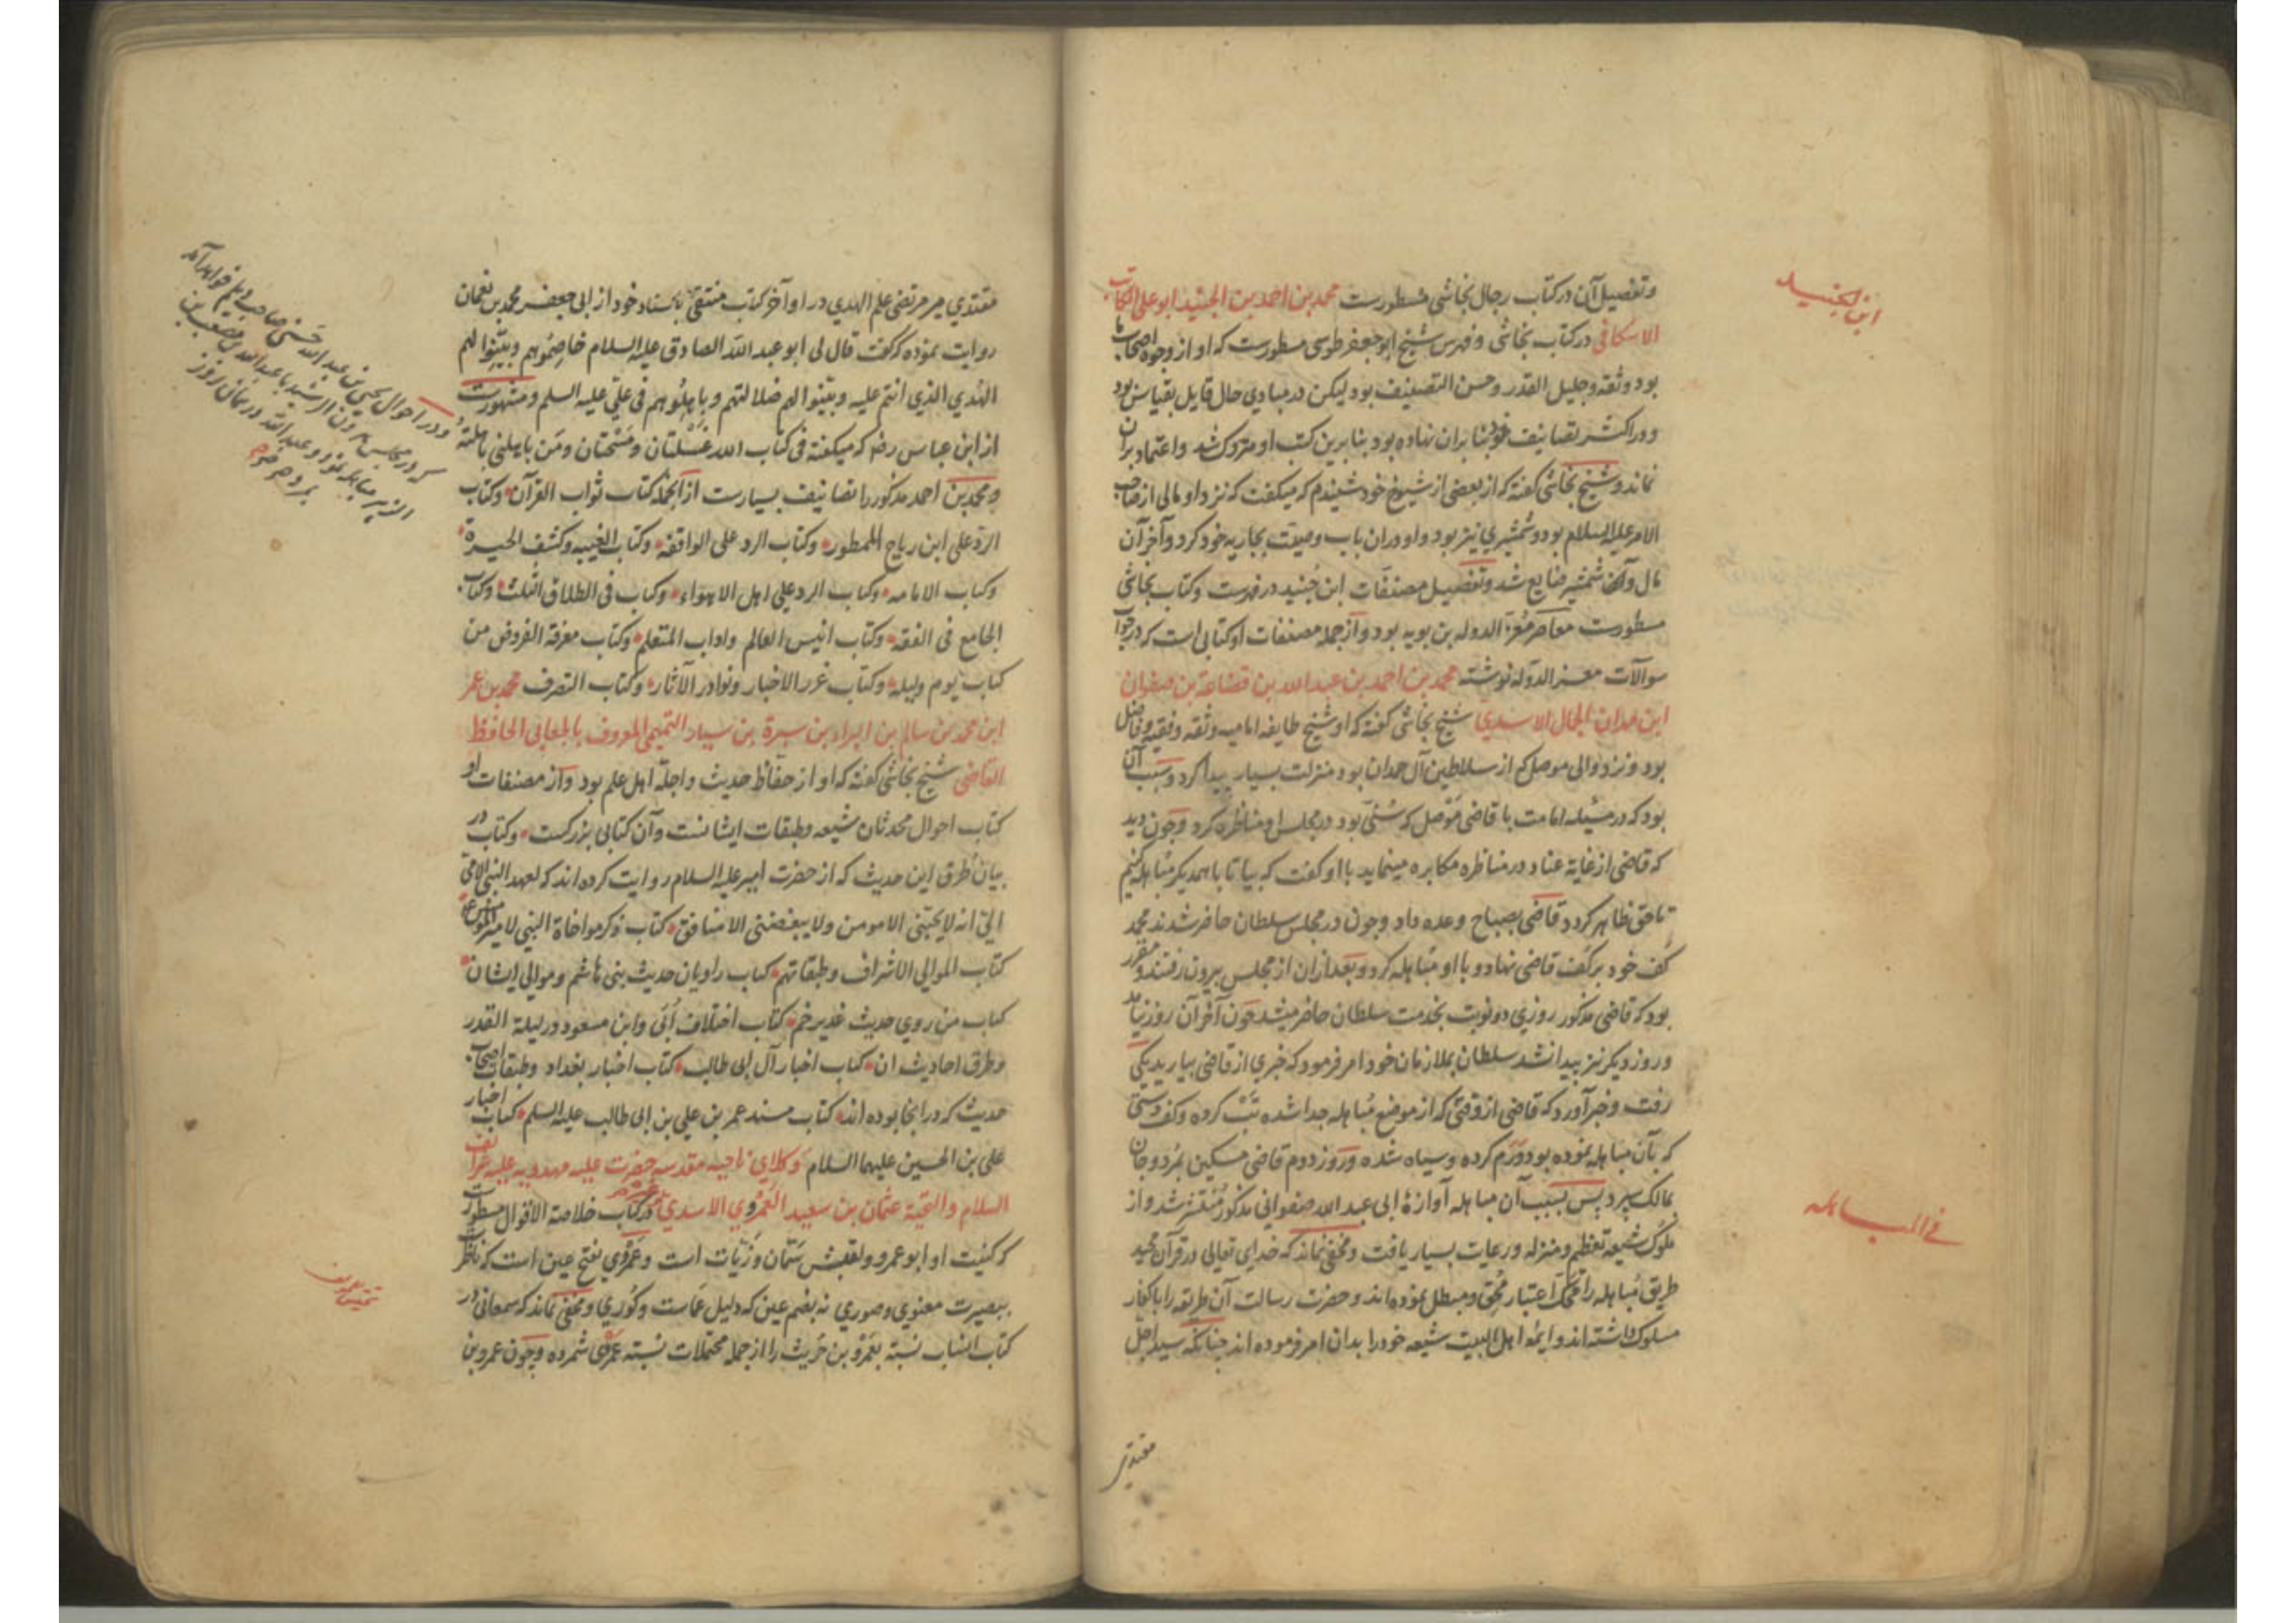 ابن الجنيد
وتفصیل آن در کتاب رجال نجاشی مسطورست محمد بن احمد بن الجنید ابو علی الکاتب
الاسکافی در کتاب نجاشی و فهرس شیخ ابو جعفر طوسی مسطورست که او از وجوه اصحاب ما
بود و ثقه و جلیل القدر و حسن التصنیف بود لیکن در مبادی حال قایل بقیاس بود
و در اکثر تصانیف خود بنا بران نهاده بود بنا برین کتب او متروک شد و اعتماد بران
نماند و شیخ نجاشی گفته که از بعضی از شیوخ خود شنیدم که میگفت که نزد او مالی از صاحب
الامر علیه السلام بود و شمشیری نیز بود و او دران باب وصیت بجاریه خود کرد و آخر آن
مال و آن شمشیر ضایع شد و تفصیل مصنفات ابن جنید در فهرست و کتاب نجاشی
مسطورست معاصر معز الدوله بن بویه بود و از جمله مصنفات او کتابی است که در جواب
سوآلات معز الدوله نوشته محمد بن احمد بن عبد الله بن قضاعة بن صفوان
ابن مهران الجمال الاسدی شیخ نجاشی گفته که او شیخ طایفه امامیه و ثقه و فقیه و فاضل
بود و نزد والی موصل که از سلاطین آل حمدان بود منزلت بسیار پیدا کرد و سبب آن
بود که در مسئله امامت با قاضی موصل که سنی بود در مجلس او مناظره کرد و چون دید
که قاضی از غایة عناد در مناظره مکابره مینماید با او گفت که بیا تا با همدیگر مباهله کنیم
تا حق ظاهر گردد قاضی بصباح وعده داد و چون در مجلس سلطان حاضر شدند محمد
کف خود بر کف قاضی نهاد و با او مباهله کرد و بعد ازان از مجلس بیرون رفتند و مقرر
بود که قاضی مذکور روزی دو نوبت بخدمت سلطان حاضر میشد چون آخر آن روز نیامد
و روز دیگر نیز پیدا نشد سلطان بملازمان خود امر فرمود که خبری از قاضی بیارید یکی
رفت و خبر آورد که قاضی از وقتی که از موضع مباهله جدا شده تب کرده و کف دستی
که بآن مباهله نموده بود ورم کرده و سیاه شده و روز دوم قاضی مسکین بمرد و جان
بمالک سپرد پس بسبب آن مباهله آوازۀ ابی عبد الله صفوانی مذکور منتشر شد و از
فی المباهله
ملوک شیعه تعظیم و منزله و رعایت بسیار یافت و مخفی نماند که خدای تعالی در قرآن مجید
طریق مباهله را محک اعتبار محق و مبطل نموده‌اند و حضرت رسالت آن طریقه را با کفار
مسلوک داشته‌اند و ایمه اهل البیت شیعه خود را بدان امر فرموده‌اند چنانکه سید اجل
مقتدی
مقتدی میر مرتضی علم الهدی در اواخر کتاب منتقی باسناد خود از ابی جعفر محمد بن نعمان
روایت نموده که گفت قال لی ابو عبد الله الصادق علیه السلام خاصموهم و بینوا لهم
الهدی الذی انتم علیه و بینوا لهم ضلالتهم و باهلوهم فی علی علیه السلم و مشهورست
از ابن عباس رض که میگفته فی کتاب الله غسلتان و مسحتان و من باهلنی باهلته
و محمد بن احمد مذکور را تصانیف بسیارست از آنجمله کتاب ثواب القرآن و کتاب
الرد علی ابن رباح الممطور و کتاب الرد علی الواقفه و کتاب الغیبه و کشف الحیرة
و کتاب الامامه و کتاب الرد علی اهل الاهواء و کتاب فی الطلاق الثلث و کتاب
الجامع فی الفقه و کتاب انیس العالم و اداب المتعلم و کتاب معرفة الفروض من
کتاب یوم و لیله و کتاب غرر الاخبار و نوادر الآثار و کتاب التصرف محمد بن عمر
ابن محمد بن سالم بن البراء بن سبرة بن سیار التمیمی المعروف بالجعابی الحافظ
القاضی شیخ نجاشی گفته که او از حفاظ حدیث و اجلّه اهل علم بود و از مصنفات او
کتاب احوال محدثان شیعه و طبقات ایشانست و آن کتابی بزرگست و کتاب در
بیان طرق این حدیث که از حضرت امیر علیه السلام روایت کرده‌اند که لعهد النبی الامی
الیّ انه لا یحبنی الا مومن ولا یبغضنی الا منافق کتاب ذکر مواخاة النبی لامیر المومنین ع
کتاب الموالی الاشراف و طبقاتهم کتاب راویان حدیث بنی هاشم و موالی ایشان
کتاب من روی حدیث غدیر خم کتاب اختلاف اُبَی و ابن مسعود در لیلة القدر
و طرق احادیث ان کتاب اخبار آل ابی طالب کتاب اخبار بغداد و طبقات اصحاب
حدیث که در انجا بوده‌اند کتاب مسند عمر بن علی بن ابی طالب علیه السلم کتاب اخبار
علی بن الحسین علیهما السلام وکلای ناحیه مقدسه حضرت علیه مهدویه علیه غرائف
السلام والتحیة عثمان بن سعید العمروی الاسدی در کتاب خلاصة الاقوال مسطورست
که کنیت او ابو عمرو و لقبش سمّان و زیّات است و عمروی بفتح عین است که ناظر
ببصیرت معنوی و صوری نه بضم عین که دلیل عماست و کوری و مخفی نماند که سمعانی در
کتاب انساب نسبة بعمرو بن حریث را از جمله محتملات نسبة عمروی شمرده و چون عمرو بن
و در احوال یحیی بن عبد الله حسنی صاحب دیلم خواهد آمد
که در مجلس هارون الرشید با عبد الله بن مصعب بن
الزبیر مباهله نمود و عبد الله در همان روز
بمرد